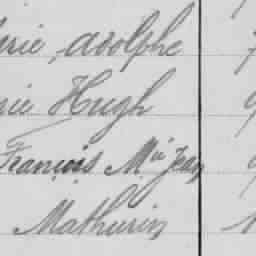 erie, adolphe
rie Hugh
François Mie Jean
Mathurin